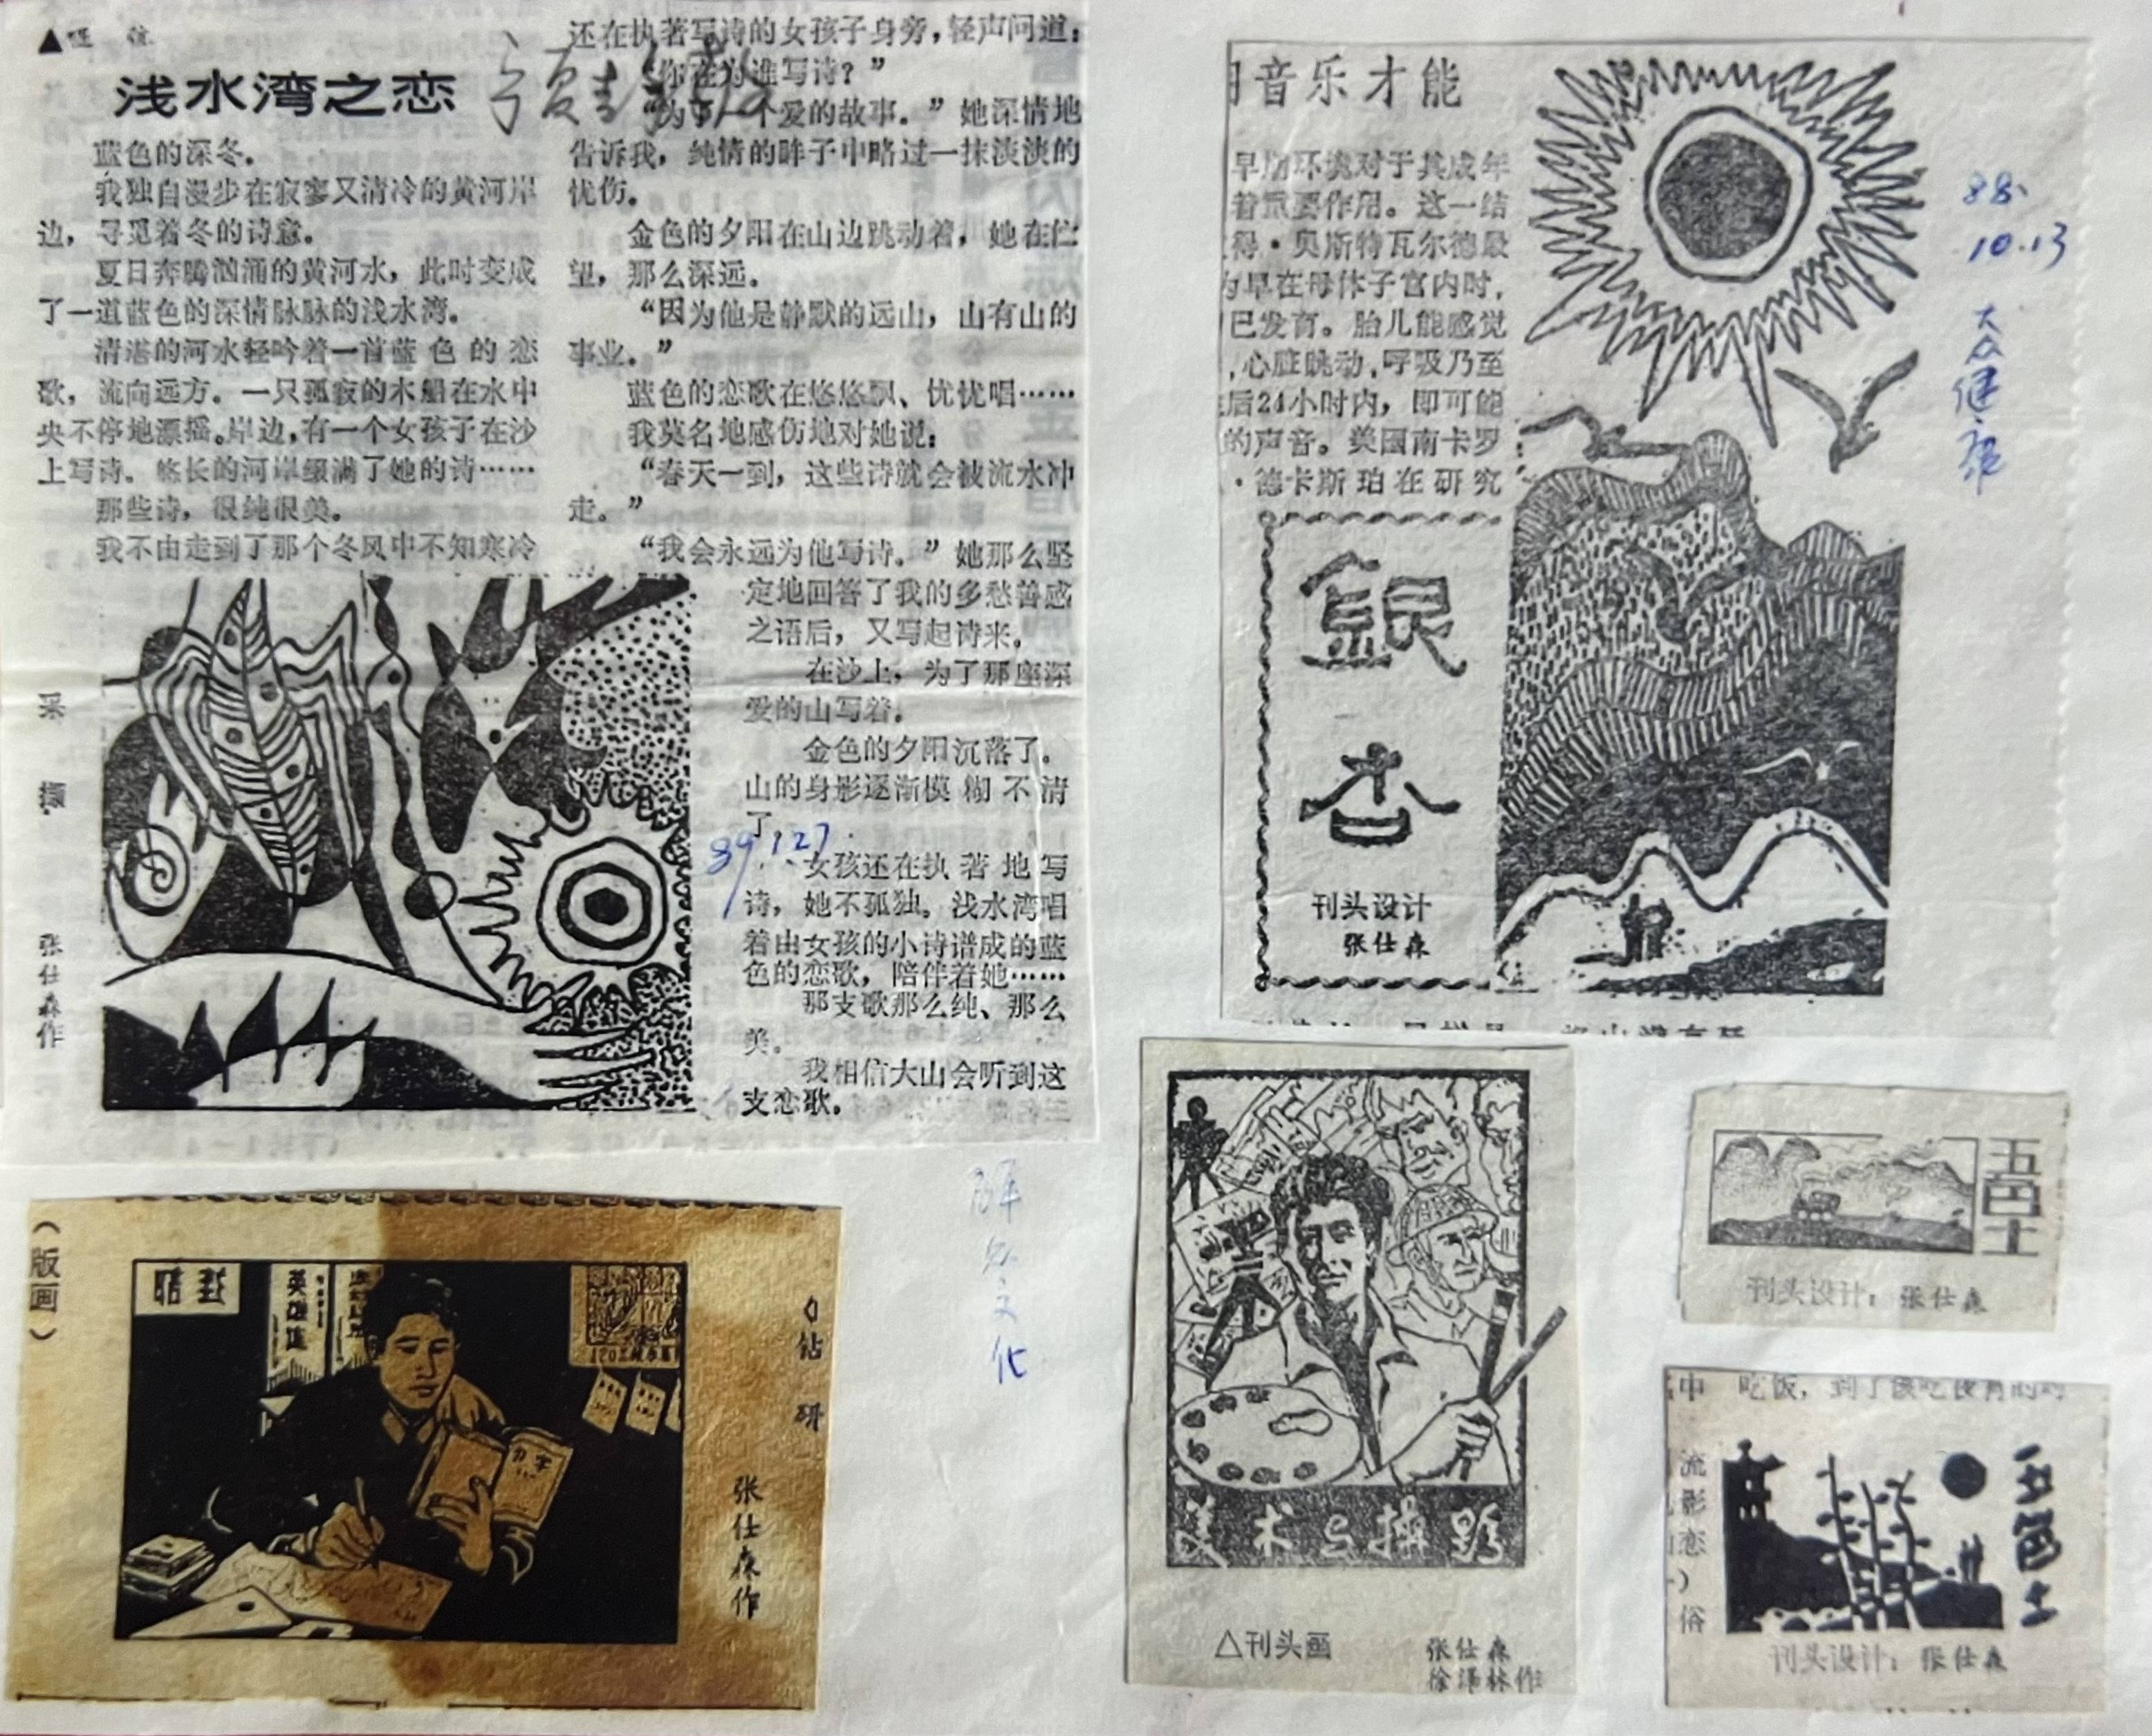 浅水湾之恋
蓝色的深冬。
我独自漫步在寂寥又清冷的黄河岸
边，寻觅着冬的诗意。
夏日奔腾汹涌的黄河水，此时变成
了一道蓝色的深情脉脉的浅水湾。
清湛的河水轻吟着一首蓝色的恋
歌，流向远方。一只孤寂的木船在水中
央不停地漂摇。岸边，有一个女孩子在沙
上写诗。悠长的河岸缀满了她的诗……
那些诗，很纯很美。
我不由走到了那个冬风中不知寒冷
还在执著写诗的女孩子身旁，轻声问道：
“你在为谁写诗？”
“为了一个爱的故事。”她深情地
告诉我，纯情的眸子中略过一抹淡淡的
忧伤。
金色的夕阳在山边跳动着，她在伫
望，那么深远。
“因为他是静默的远山，山有山的
事业。”
蓝色的恋歌在悠悠飘、忧忧唱……
我莫名地感伤地对她说：
“春天一到，这些诗就会被流水冲
走。”
“我会永远为他写诗。”她那么坚
定地回答了我的多愁善感
之语后，又写起诗来。
在沙上，为了那座深
爱的山写着。
金色的夕阳沉落了。
山的身影逐渐模糊不清
了。
89.1.27
女孩还在执著地写
诗，她不孤独。浅水湾唱
着由女孩的小诗谱成的蓝
色的恋歌，陪伴着她……
那支歌那么纯、那么
美。
我相信大山会听到这
支恋歌。
采撷
张仕森作
音乐才能
早期环境对于其成年
着重要作用。这一结
得·奥斯特瓦尔德最
早在母体子宫内时，
已发育。胎儿能感觉
，心脏跳动，呼吸乃至
后24小时内，即可能
的声音。美国南卡罗
·德卡斯珀在研究
银杏
刊头设计
张仕森
88.
10.13
大众健报
（版画）
英雄
钻研
张仕森作
文化
美术与摄影
△刊头画
张仕森
徐泽林作
五色土
刊头设计：张仕森
中 吃饭，到了
流
影
恋
）
俗
五色土
刊头设计：张仕森